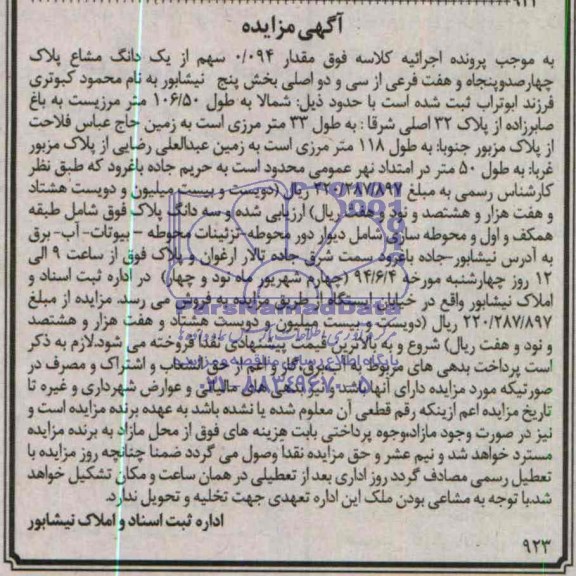 آگهی مزایده
به موجب پرونده اجرائیه کلاسه فوق مقدار ۰/۰۹۴ سهم از یک دانگ مشاع پلاک
چهارصدوپنجاه و هفت فرعی از سی و دو اصلی بخش پنج نیشابور به نام محمود کبوتری
فرزند ابوتراب ثبت شده است با حدود ذیل: شمالا به طول ۱۰۶/۵۰ متر مرزیست به باغ
صابرزاده از پلاک ۳۲ اصلی شرقا: به طول ۳۳ متر مرزی است به زمین حاج عباس فلاحت
از پلاک مزبور جنوبا: به طول ۱۱۸ متر مرزی است به زمین عبدالعلی رضایی از پلاک مزبور
غربا: به طول ۵۰ متر در امتداد نهر عمومی محدود است به حریم جاده باغرود که طبق نظر
کارشناس رسمی به مبلغ ۲۲۰/۲۸۷/۸۹۷ ریال (دویست و بیست میلیون و دویست هشتاد
و هفت هزار و هشتصد و نود و هفت ریال) ارزیابی شده و سه دانگ پلاک فوق شامل طبقه
همکف و اول و محوطه سازی شامل دیوار دور محوطه-تزئینات محوطه - بیوتات- آب- برق
به آدرس نیشابور-جاده باغرود سمت شرق جاده تالار ارغوان و پلاک فوق از ساعت ۹ الی
۱۲ روز چهارشنبه مورخه ۹۴/۶/۴ (چهارم شهریور ماه نود و چهار) در اداره ثبت اسناد و
املاک نیشابور واقع در خیابان ایستگاه از طریق مزایده به فروش می رسد. مزایده از مبلغ
۲۲۰/۲۸۷/۸۹۷ ریال (دویست و بیست میلیون و دویست هشتاد و هفت هزار و هشتصد
و نود و هفت ریال) شروع و به بالاترین قیمت پیشنهادی نقدا فروخته می شود.لازم به ذکر
است پرداخت بدهی های مربوط به آب،برق،گاز و اعم از حق انشعاب و اشتراک و مصرف در
صورتیکه مورد مزایده دارای آنها باشد و نیز بدهی های مالیاتی و عوارض شهرداری و غیره تا
تاریخ مزایده اعم ازینکه رقم قطعی آن معلوم شده یا نشده باشد به عهده برنده مزایده است و
نیز در صورت وجود مازاد،وجوه پرداختی بابت هزینه های فوق از محل مازاد به برنده مزایده
مسترد خواهد شد و نیم عشر و حق مزایده نقدا وصول می گردد ضمنا چنانچه روز مزایده با
تعطیل رسمی مصادف گردد روز اداری بعد از تعطیلی در همان ساعت و مکان تشکیل خواهد
شد.با توجه به مشاعی بودن ملک این اداره تعهدی جهت تخلیه و تحویل ندارد.
اداره ثبت اسناد و املاک نیشابور
۹۲۳
ParsNamadData
پایگاه اطلاع رسانی مناقصه و مزایده